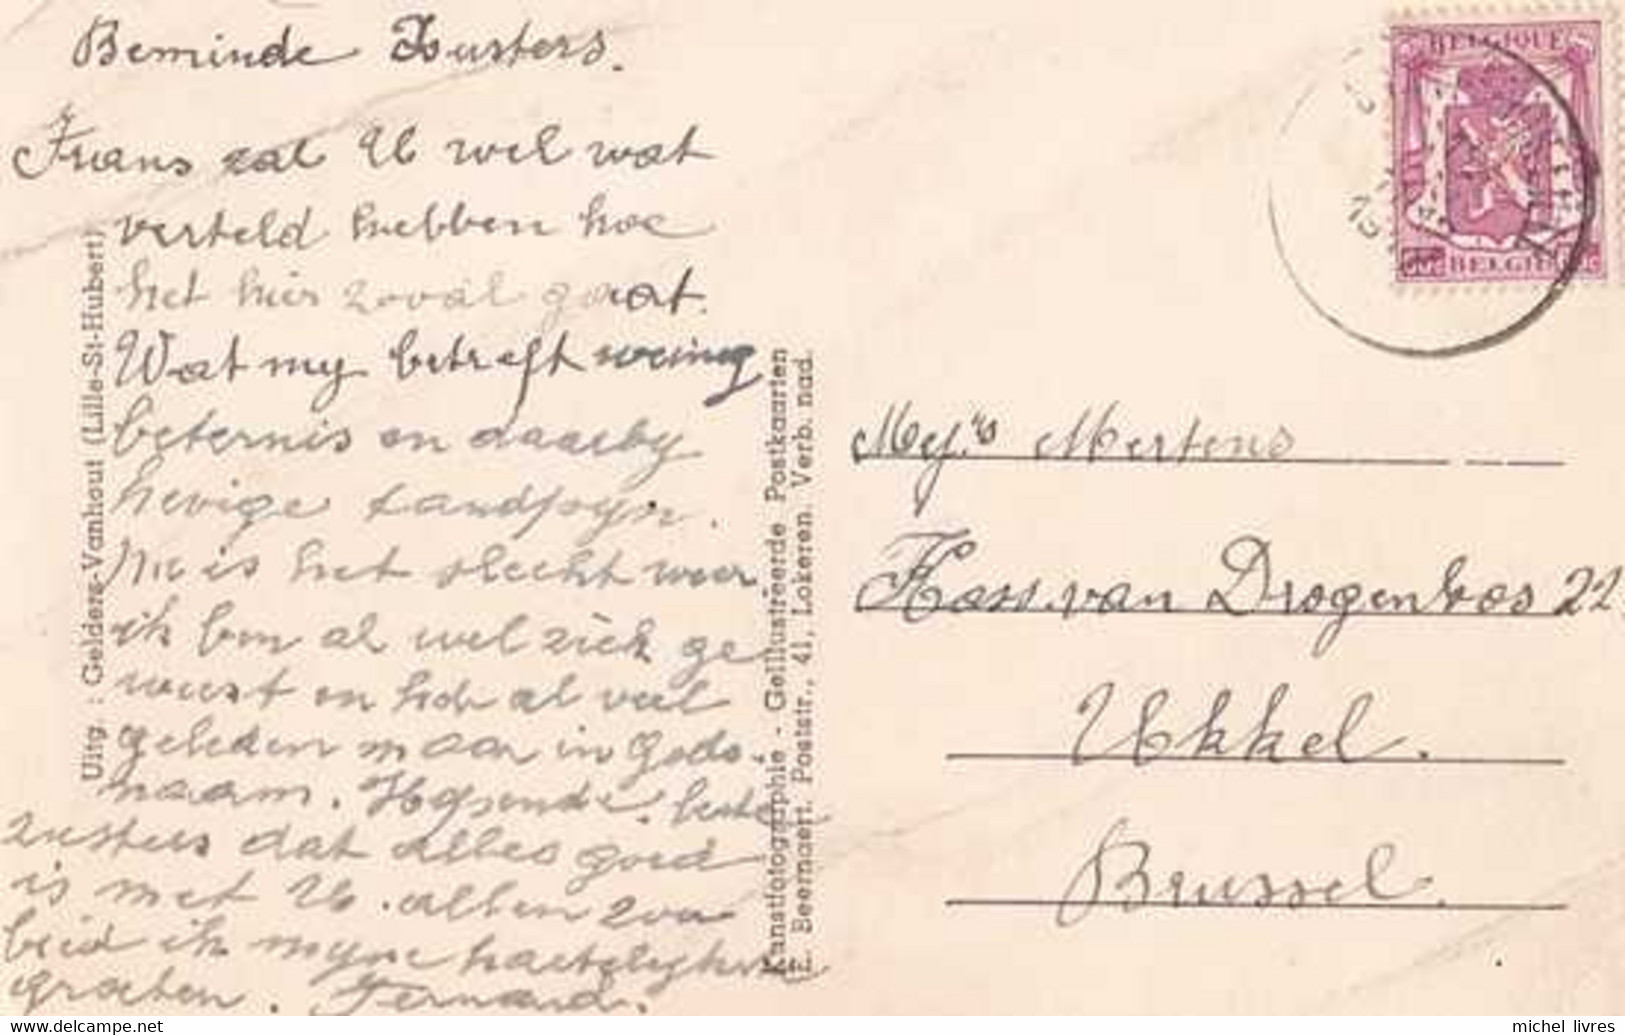 Beminde Zusters.
Frans zal U wel wat
verteld hebben hoe
het hier zooal gaat.
Wat my betreft weinig
beternis en daarby
hevige tandpyn.
Nu is het slecht weer
ik ben al wel ziek ge
weest en heb al veel
geleden maar in Gods
naam. Hopende beste
zusters dat alles goed
is met U allen zoo
beid ik myne hartelyke
groeten. Fernand.
Uitg. : Gelders-Vanhout (Lille-St-Hubert)
Kunstfotographie - Geïllustreerde Postkaarten
E. Beernaert. Poststr., 41, Lokeren. Verb. nad.
BELGIQUE
BELGIE
Mej.rs Mertens
van Drogenbos 22
Ukkel.
Brussel.
www.delcampe.net
michel_livres